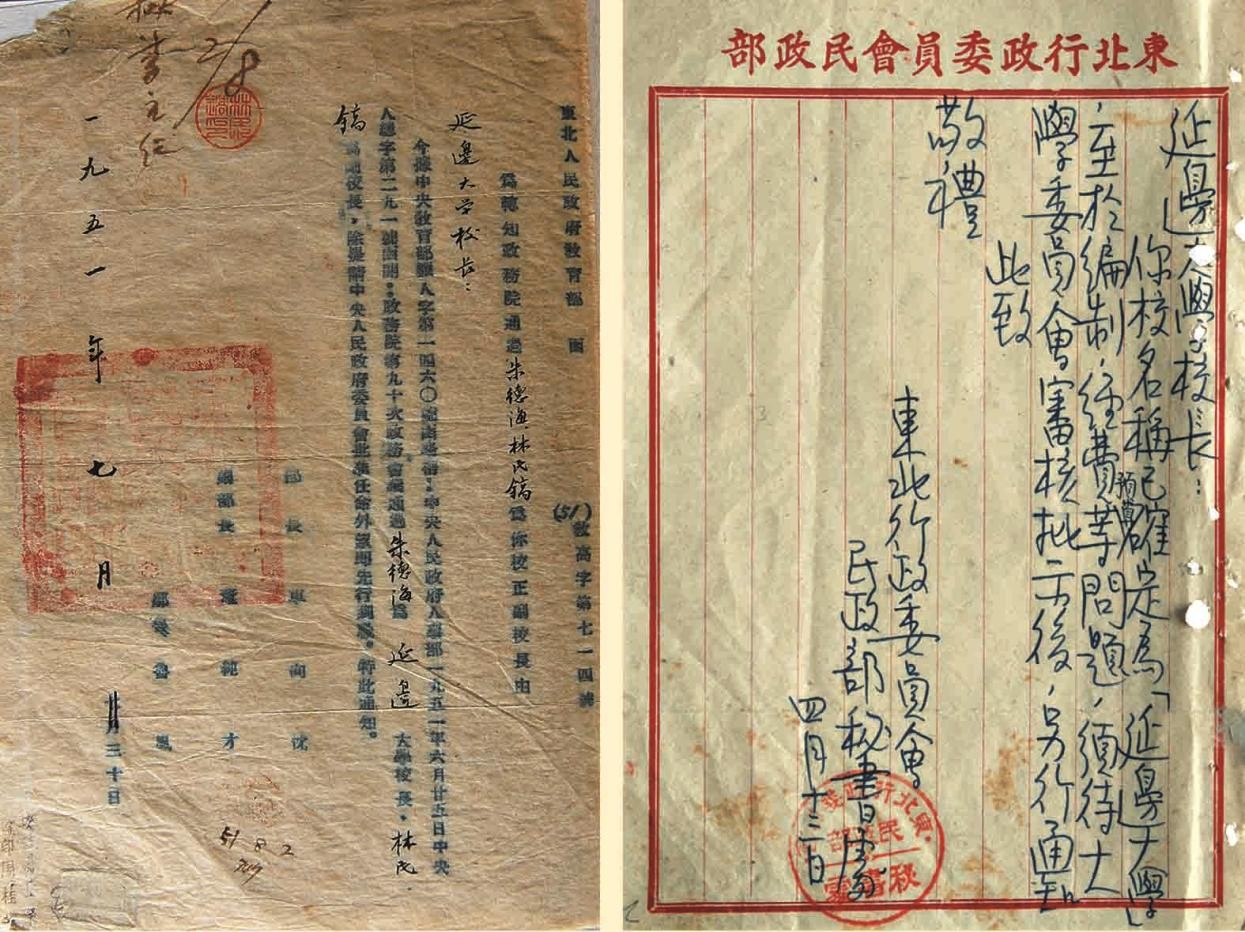 東北人民政府教育部 函
(51)教高字第七一四號
為轉知政務院通過朱德海林民鎬為你校正副校長由
延邊大学校長：
令據中央教育部匯人字第一四六〇號函略開：中央人民政府人事部一九五一年六月廿五日中央
人總字第二九一號函開：政務院第九十次政務會議通過朱德海為 延邊 大學校長，林民
鎬為副校長，除提請中央人民政府委員會批准任命外望即先行到職。特此通知。
部長 車向忱
副部長 董純才
一九五一年七月三十日
2/8
51 8 2
東北行政委員會民政部
延邊大學校長：
你校名稱已確定為「延邊大學」
，至於編制，經費預算等問題，須待大
學委員會審核批示後，另行通知
此致
敬禮
東北行政委員會
民政部秘書處
四月十三日
東北行政委
民政部
秘書處